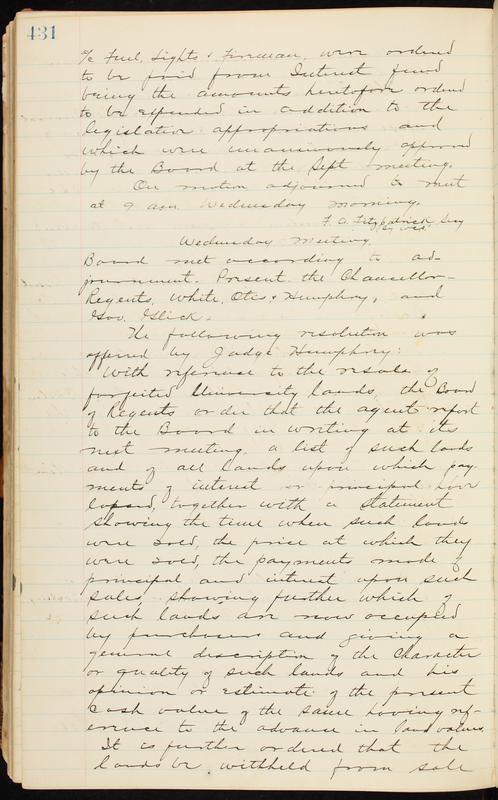 431
a/c Fuel, Lights & Fireman, were ordered
to be paid from Interest fund
being the amounts heretofore ordered
to be expended in addition to the
legislative appropriations and
which were unanimously approved
by the Board at the Sept meeting.
On motion adjourned to meet
at 9 a.m. Wednesday morning.
F. A. Fitzpatrick Secy
Wednesday Meeting
Board met according to ad-
journment. Present the Chancellor-
Regents, White, Otis & Humphry, and
Gov. Glick.
The following resolution was
offered by Judge Humphry:
With reference to the resale of
forfeited University lands, the Board
of Regents order that the agent report
to the Board in writing at its
next meeting a list of such lands
and of all lands upon which pay
ments of interest or principal have
lapsed, together with a statement
showing the time when such lands
were sold, the price at which they
were sold, the payments made of
principal and interest upon such
sales, showing further which of
such lands are now occupied
by purchasers and giving a
general description of the character
or quality of such lands and his
opinion or estimate of the present
cash value of the same having ref-
erence to the advance in land values,
It is further ordered that the
lands be withheld from sale